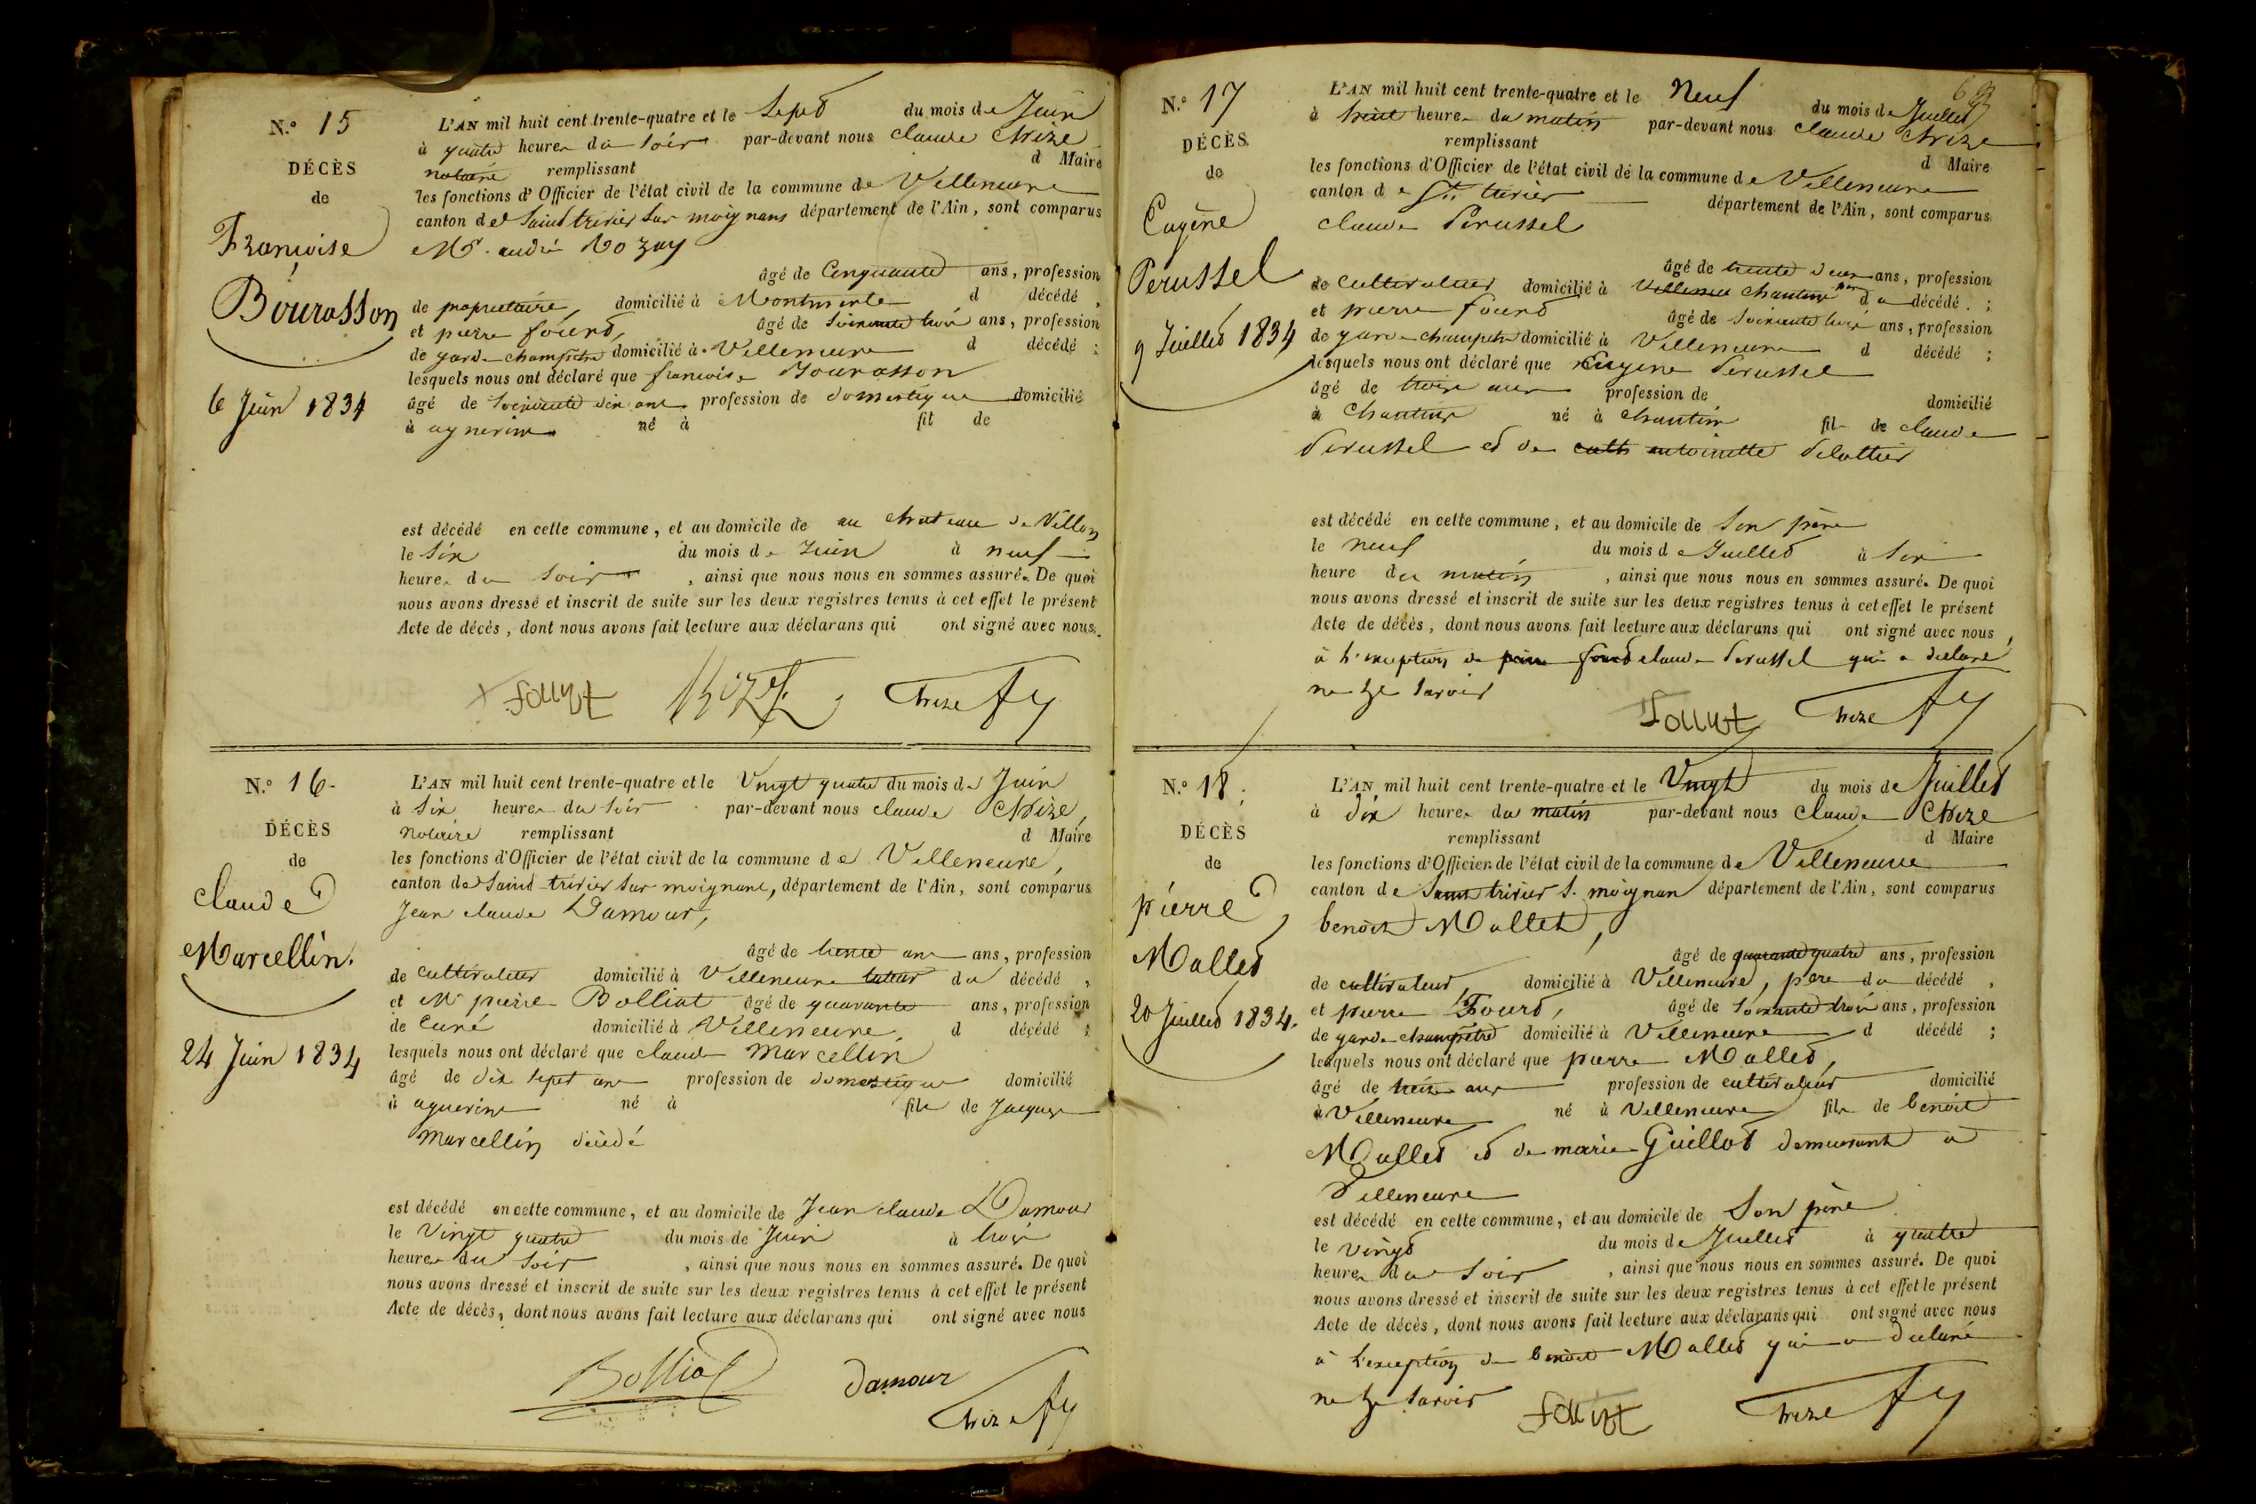 N.° 15
DÉCÈS
de
Françoise
Bourasson
6 Juin 1834
L'AN mil huit cent trente-quatre et le Sept du mois de Juin
à quatre heures du soir par-devant nous Claude Chize
notaire remplissant d Maire
les fonctions d'Officier de l'état civil de la commune de Villeneuve
canton de Saint trivier sur moignans département de l'Ain, sont comparus
Mr. andré
âgé de Cinquante ans, profession
de propriétaire, domicilié à d décédé,
et pierre fourd, âgé de soixante trois ans, profession
de garde champêtre domicilié à Villeneuve d décédé ;
lesquels nous ont déclaré que françoise Bourasson
âgé de soixante dix ans profession de domestique domicilié
à né à fil de
est décédé en cette commune, et au domicile de au chateau de
le Six du mois de Juin à neuf
heures du soir, ainsi que nous nous en sommes assuré. De quoi
nous avons dressé et inscrit de suite sur les deux registres tenus à cet effet le présent
Acte de décès, dont nous avons fait lecture aux déclarans qui ont signé avec nous.
Chize
N.° 16.
DÉCÈS
de
Claude
Marcellin.
24 Juin 1834
L'AN mil huit cent trente-quatre et le Vingt quatre du mois de Juin
à six heures du soir par-devant nous claude Chize,
notaire remplissant d Maire
les fonctions d'Officier de l'état civil de la commune de Villeneuve,
canton de Saint trivier sur moignans, département de l'Ain, sont comparus
Jean claude Damour,
âgé de trente ans, profession
de cultivateur domicilié à Villeneuve tuteur du décédé,
et Mr pierre Bolliat âgé de quarante ans, profession
de Curé domicilié à Villeneuve, d décédé ;
lesquels nous ont déclaré que claude Marcellin
âgé de dix sept ans profession de domestique domicilié
à né à fils de Jacques
Marcellin décédé
est décédé en cette commune, et au domicile de Jean claude Damour
le Vingt quatre du mois de Juin à trois
heures du soir, ainsi que nous nous en sommes assuré. De quoi
nous avons dressé et inscrit de suite sur les deux registres tenus à cet effet le présent
Acte de décès, dont nous avons fait lecture aux déclarans qui ont signé avec nous
Bolliat Damour
Chize
69
N.° 17
DÉCÈS
de
Eugène
Perussel
9 Juillet 1834
L'AN mil huit cent trente-quatre et le Neuf du mois de Juillet
à heures du matin par-devant nous Claude Chize
remplissant d Maire
les fonctions d'Officier de l'état civil de la commune de Villeneuve
canton de St. trivier département de l'Ain, sont comparus
claude Perussel
âgé de trente deux ans, profession
de cultivateur domicilié à père du décédé ;
et pierre fourd âgé de soixante trois ans, profession
de garde champêtre domicilié à Villeneuve d décédé ;
lesquels nous ont déclaré que Eugène Perussel
âgé de profession de domicilié
à né à fils de claude
Perussel et de antoinette
est décédé en cette commune, et au domicile de son père
le neuf du mois de Juillet à six
heure du matin, ainsi que nous nous en sommes assuré. De quoi
nous avons dressé et inscrit de suite sur les deux registres tenus à cet effet le présent
Acte de décès, dont nous avons fait lecture aux déclarans qui ont signé avec nous,
à l'exception de claude Perussel qui a déclaré
ne le savoir
Chize
N.° 18.
DÉCÈS
de
pierre
Mallet
20 Juillet 1834.
L'AN mil huit cent trente-quatre et le Vingt du mois de Juillet
à dix heures du matin par-devant nous claude Chize
remplissant d Maire
les fonctions d'Officier de l'état civil de la commune de Villeneuve
canton de Saint trivier s. moignan département de l'Ain, sont comparus
benoit Mallet,
âgé de quarante quatre ans, profession
de cultivateur, domicilié à Villeneuve, père du décédé,
et pierre Fourd, âgé de soixante trois ans, profession
de garde champêtre domicilié à Villeneuve d décédé ;
lesquels nous ont déclaré que pierre Mallet,
âgé de treize ans profession de cultivateur domicilié
à Villeneuve né à Villeneuve fils de benoit
Mallet et de marie Guillot demeurant à
Villeneuve
est décédé en cette commune, et au domicile de son père
le vingt du mois de Juillet à quatre
heures du soir, ainsi que nous nous en sommes assuré. De quoi
nous avons dressé et inscrit de suite sur les deux registres tenus à cet effet le présent
Acte de décès, dont nous avons fait lecture aux déclarans qui ont signé avec nous
à l'exception de benoit Mallet qui a déclaré
ne le savoir
Chize